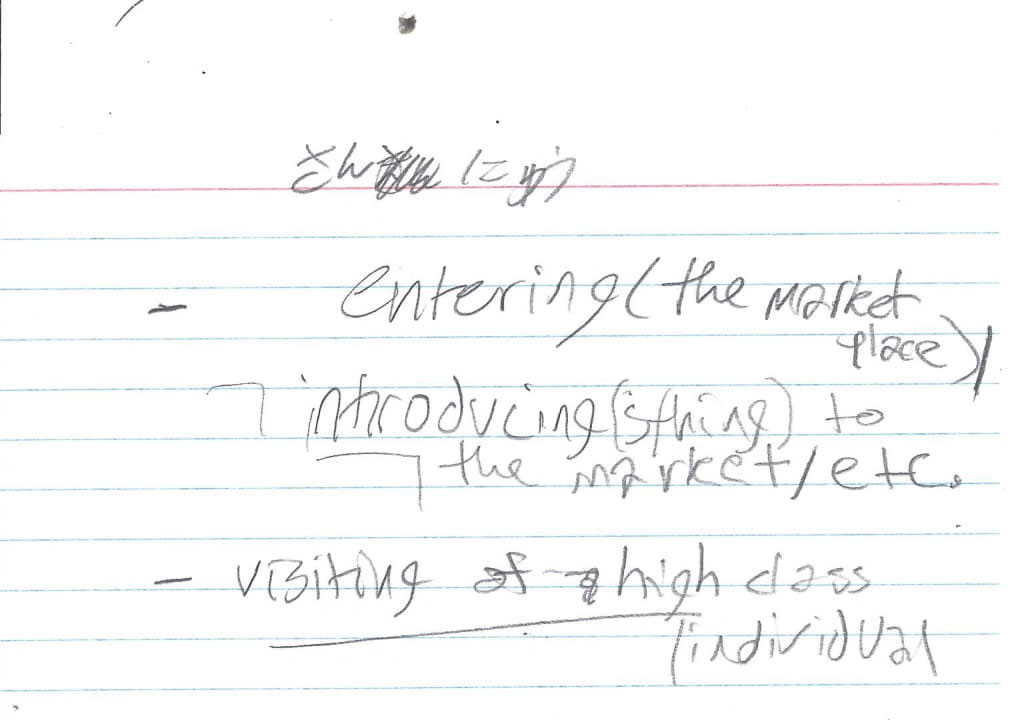 さんにゅう
- entering (the market
place)/
introducing (s'thing) to
the market/etc.
- visiting of a high class
individual